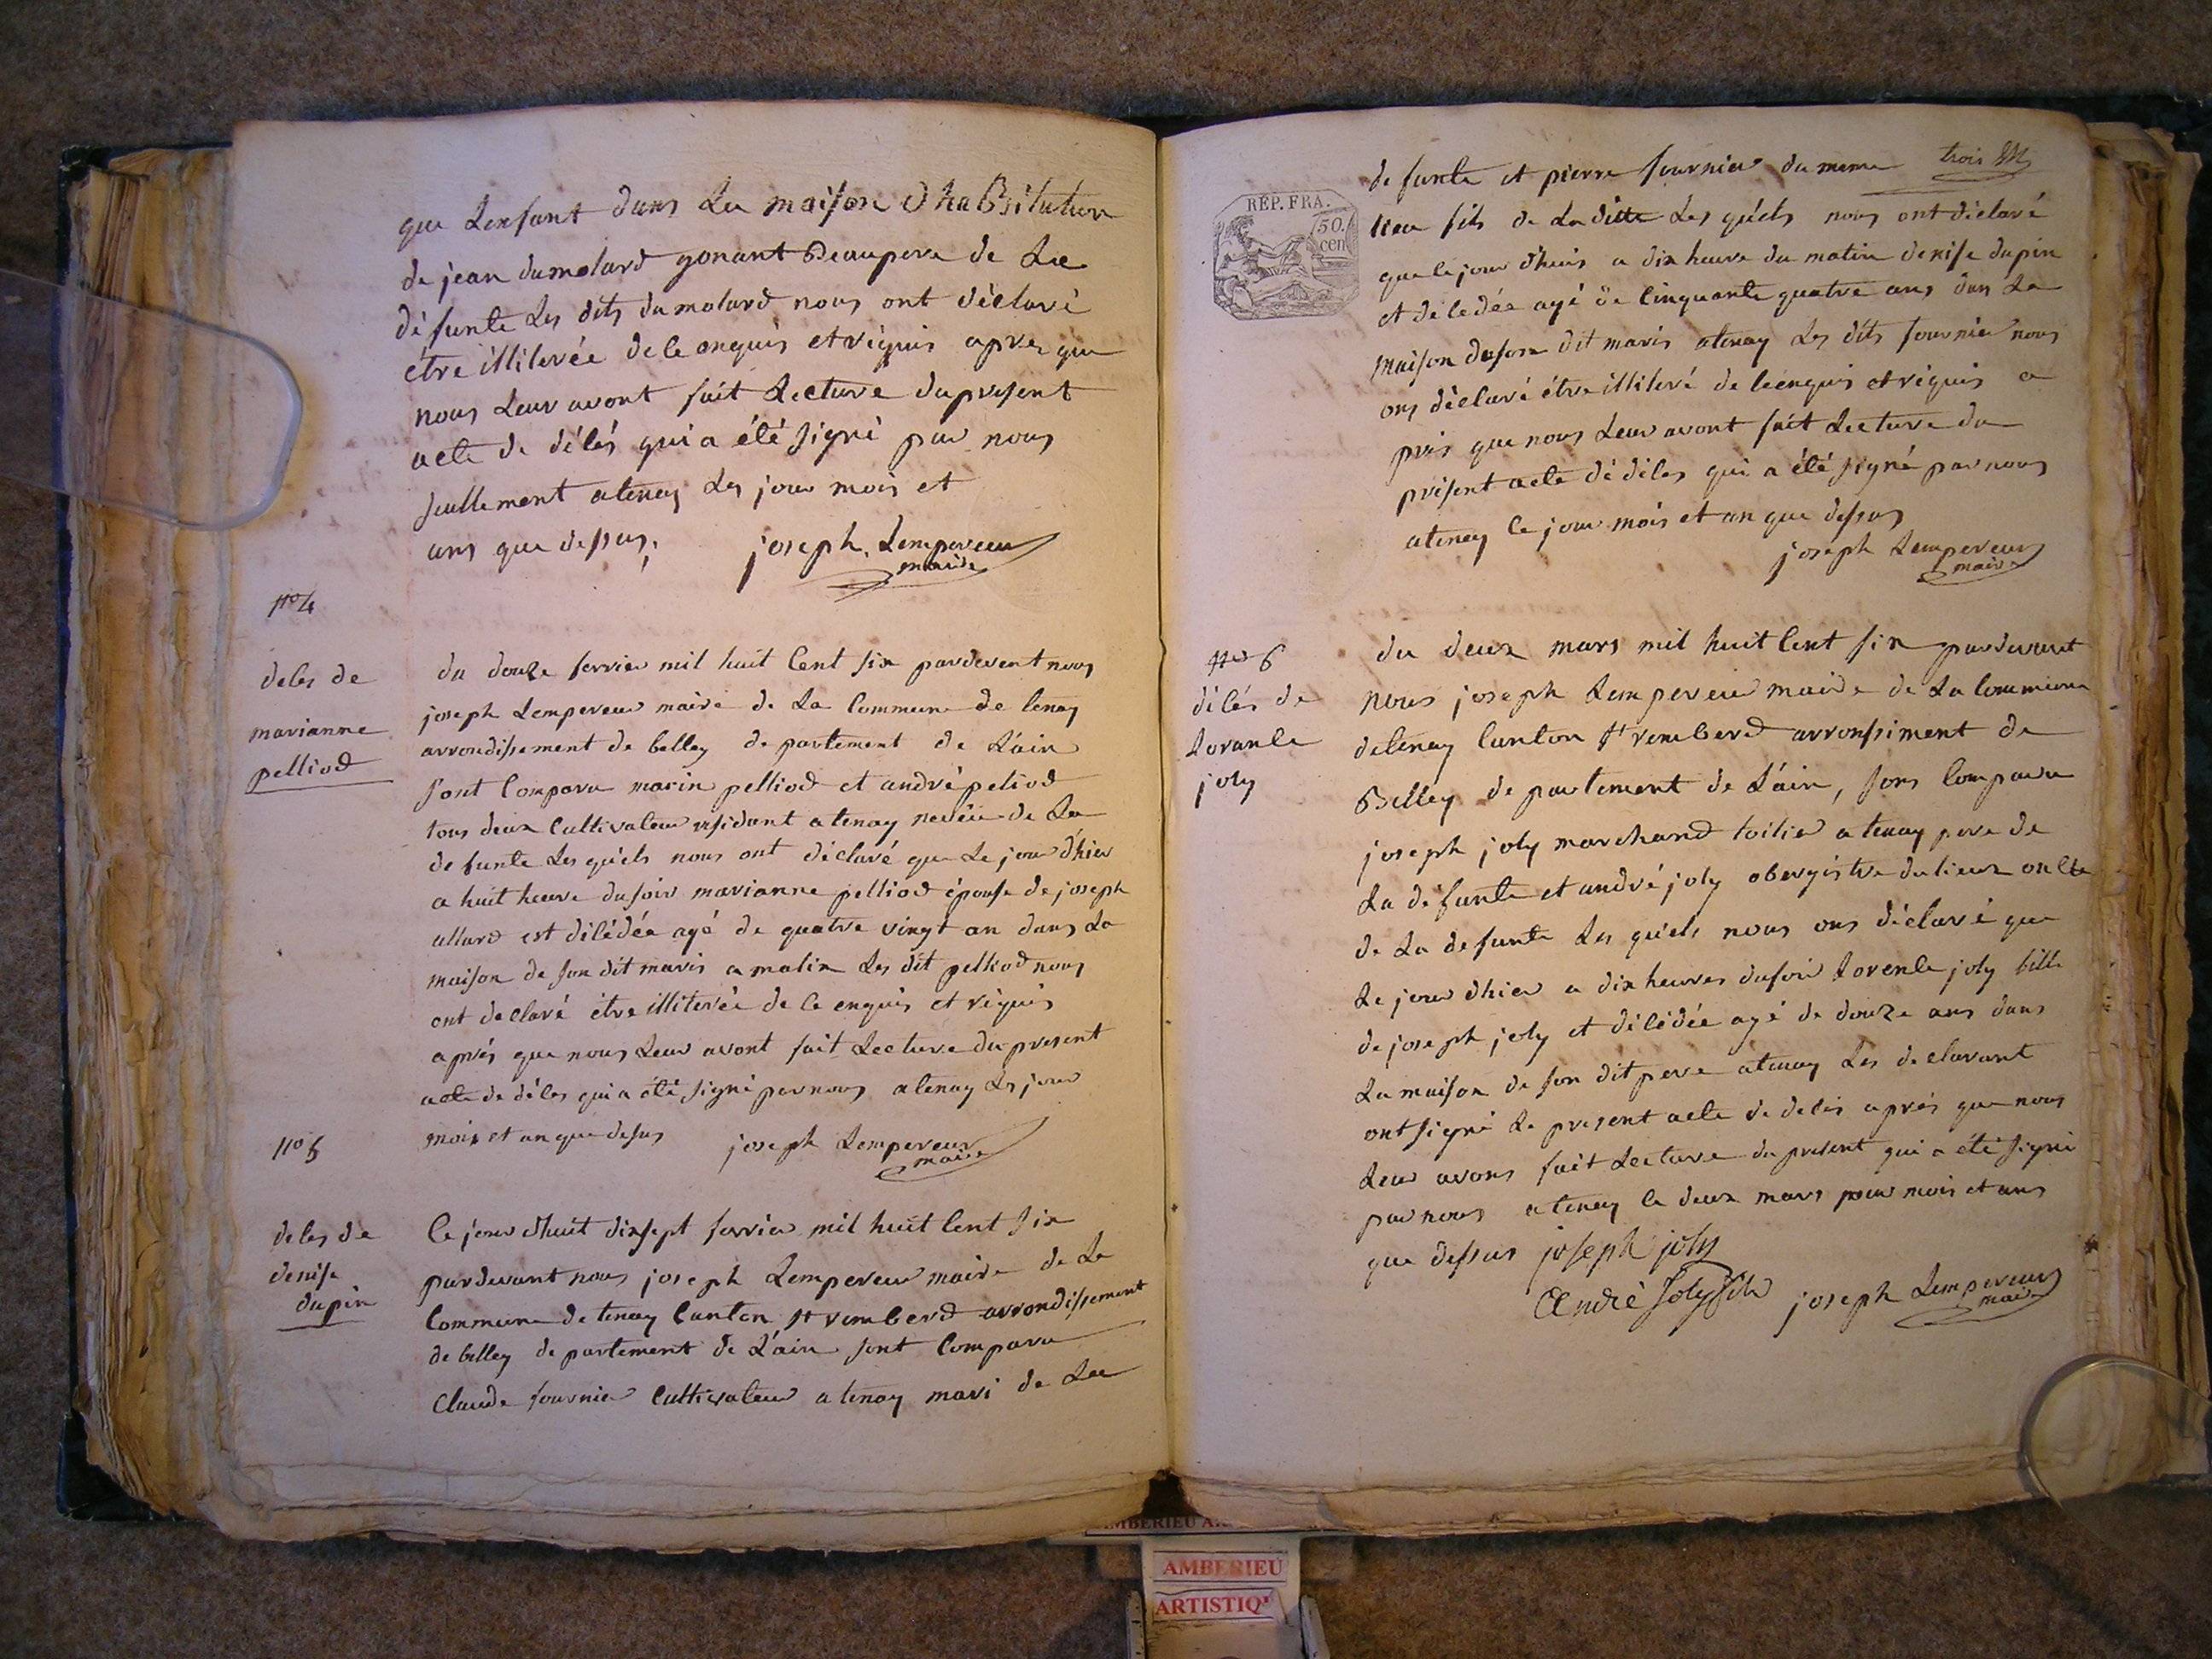 que Lenfant dans La maison d habsitution
de jean dumolard gonant Beaupere de La
défunte Les dits dumolard nous ont déclaré
étre illiterée de le enquis et réquis apres que
nous Leur avont fait Lecture du present
acte de décés qui a été signé par nous
seullement atenay Les jour mois et
ans que dessus, joseph Lempereur
maire
no 4
deces de
marianne
pelliod
du douze fevrier mil huit cent six pardevent nous
joseph Lempereur maire de La commune de tenay
arrondissement de belley de partement de L'ain
sont comparu marin pelliod et andré peliod
tous deux cultivateur résidant a tenay neveu de La
defunte Les quéls nous ont déclaré que Le jour d'hier
a huit heure du soir marianne pelliod épouse de joseph
allard est décédée agé de quatre vingt an dans La
maison de son dit maris a malix Les dit pelliod nous
ont declaré étre illiterée de le enquis et réquis
aprés que nous Leur avont fait Lecture du present
acte de décés qui a été signé par nous a tenay Les jour
mois et an que desus joseph Lempereur
maire
no 5
deces de
denise
dupin
ce jour dhuit dixsept fevrier mil huit cent six
pardevant nous joseph Lempereur maire de La
commune de tenay canton st remberd arrondissement
de belley de partement de L'ain sont comparu
Claude fournier cultivateur a tenay mari de La
trois
defunte et pierre fournier du meme
RÉP. FRA.
50.
cen
lieu fils de La ditte Les quéls nous ont déclaré
que le jour dhuis a dix heure du matin denise dupin
et décedée agé de cinquante quatre ans dans La
maison de son dit maris atenay Les dits fournier nous
ons déclaré étre illiteré de le enquis et réquis a
prés que nous Leur avont fait Lecture du
présent acte dé déces qui a été signé par nous
atenay ce jour mois et an que dessus
joseph Lempereur
maire
no 6
décés de
Lorance
joly
du deux mars mil huit cent six pardevant
nous joseph Lempereur maire de La commune
de tenay canton st remberd arronssiment de
Belley de partement de L'ain, sons comparu
joseph joly marchand toilier a tenay pere de
La défunte et andré joly obergistre du lieux oncle
de La defunte Les quéls nous ons déclaré que
Le jour dhier a dix heures du soir Lorence joly fille
de joseph joly et décédée agé de douze ans dans
La maison de son dit pere atenay Les declarant
ont signé Le present acte de décés aprés que nous
Leur avons fait Lecture du present qui a été signé
par nous a tenay le deux mars jour mois et ans
que dessus joseph joly
André Joly fils joseph Lempereur
maire
AMBERIEU
ARTISTIQ